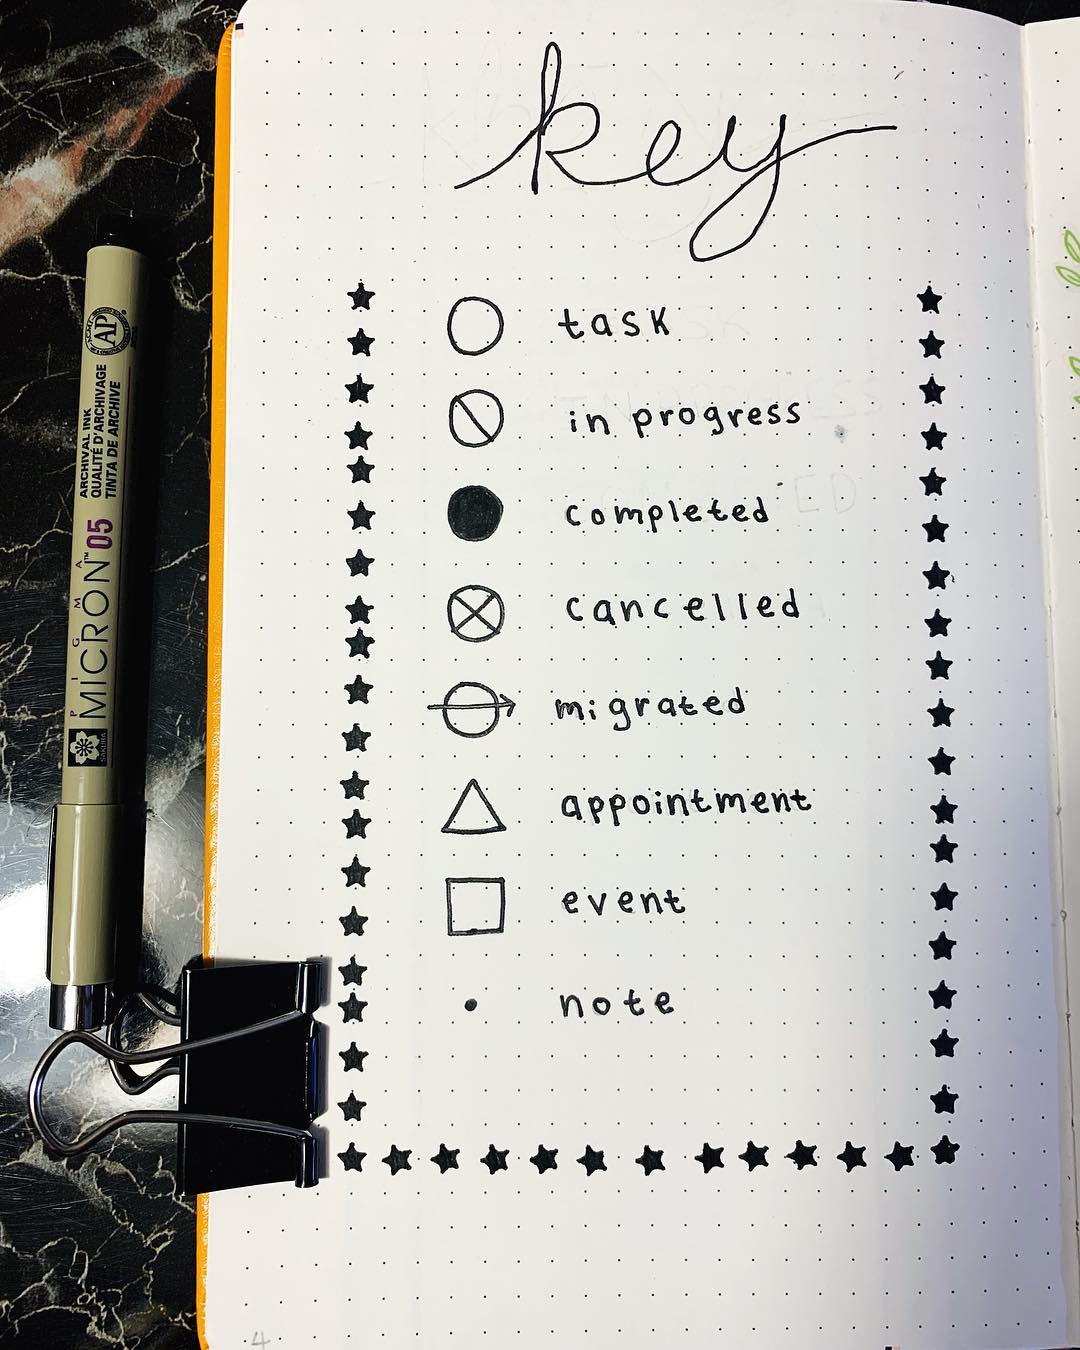 key
task
in progress
completed
cancelled
migrated
appointment
event
note
4
AP
ARCHIVAL INK
QUALITÉ D'ARCHIVAGE
TINTA DE ARCHIVE
PIGMA
MICRON™ 05
SAKURA